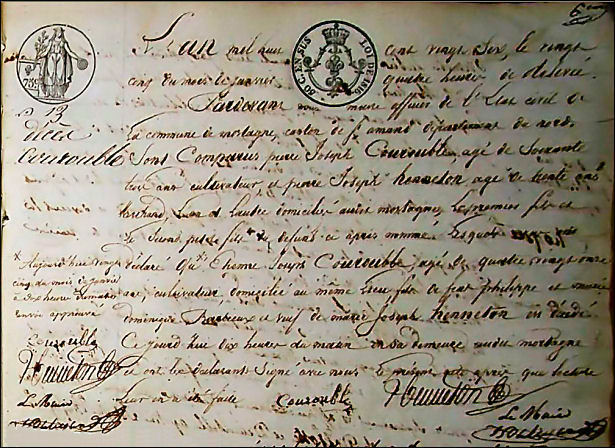 6
L'an mil huit cent vingt six le vingt
cinq du mois de janvier quatre heures de relevée
Pardevant nous maire officier de l'Etat civil de
la commune de mortagne, canton de St amand département du nord.
Sont Comparus pierre Joseph Courouble, agé de Soixante
trois ans cultivateur, et pierre Joseph henneton agé de trente ans
marchand, l'un et l'autre domiciliés audit mortagne, les premier fils et
le Second petit fils * defunt ci après nommé. Lesquels
déclaré qu'Etienne Joseph Courouble, agé de quatre vingt onze
ans, cultivateur domicilié au même lieu fils de feu philippe et marie
dominique et veuf de marie Joseph henneton est décédé
Ce jourd'hui dix heures du matin en sa demeure audit mortagne
et ont les déclarants Signé avec nous le présent acte après que lecture
leur en a été faite
Courouble
Henneton
Le Maire
80 CEN SUS
LOI DE 1816
N° 13
décès
Courouble
* Aujourd'hui vingt
cinq du mois de janvier
à dix heures du matin
renvoi approuvé
Courouble
Henneton
Le Maire